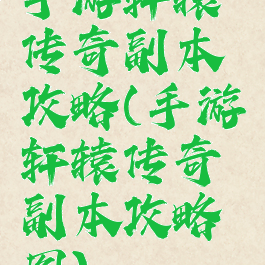 手游轩辕
传奇副本
攻略(手游
轩辕传奇
副本攻略
图)